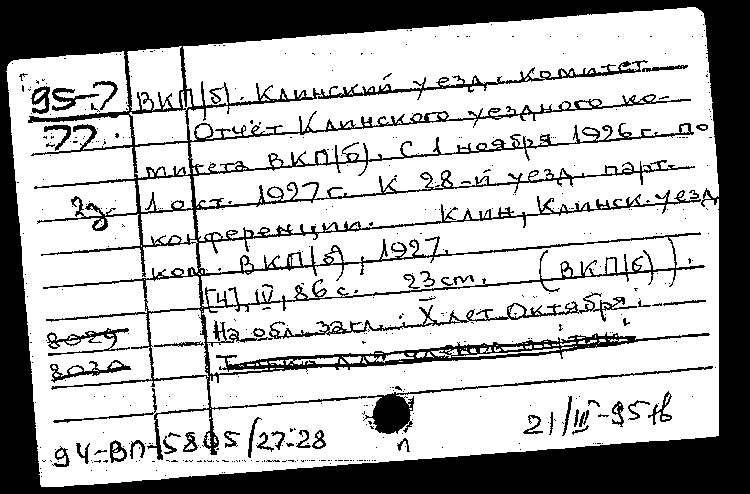 95-7
77.
ВКП(б). Клинский уезд. комитет
Отчёт Клинского уездного ко-
митета ВКП(б). С 1 ноября 1926 г. по
2д.
1 окт. 1927 г. К 28-й уезд. парт-
конференции. Клин, Клинск. уезд.
ком. ВКП(б), 1927.
[4], IV, 86 с. 23 cm. (ВКП(б)).
На обл. загл.: X лет Октября.
8029
"Только для членов партии"
8030
94-ВП-5805/27-28
п
21/III-95